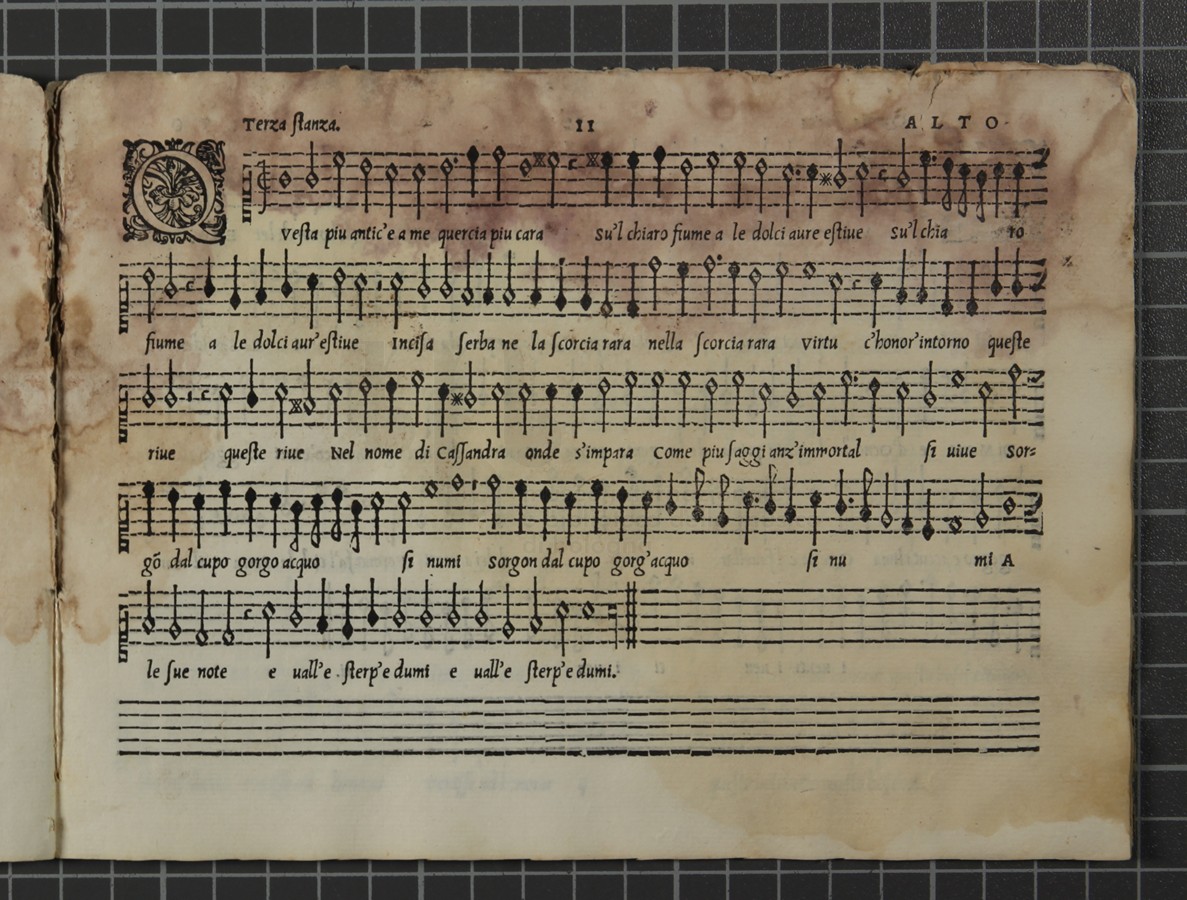 Terza stanza. 11 ALTO
Questa piu antic'e a me quercia piu cara su'l chiaro fiume a le dolci aure estiue su'l chia ro
fiume a le dolci aur'estiue Incisa serba ne la scorcia rara nella scorcia rara virtu c'honor'intorno queste
riue queste riue Nel nome di Cassandra onde s'impara Come piu saggi anz'immortal si uiue sor=
gõ dal cupo gorgo acquo si numi sorgon dal cupo gorg'acquo si nu mi A
le sue note e uall'e sterp'e dumi e uall'e sterp'e dumi.